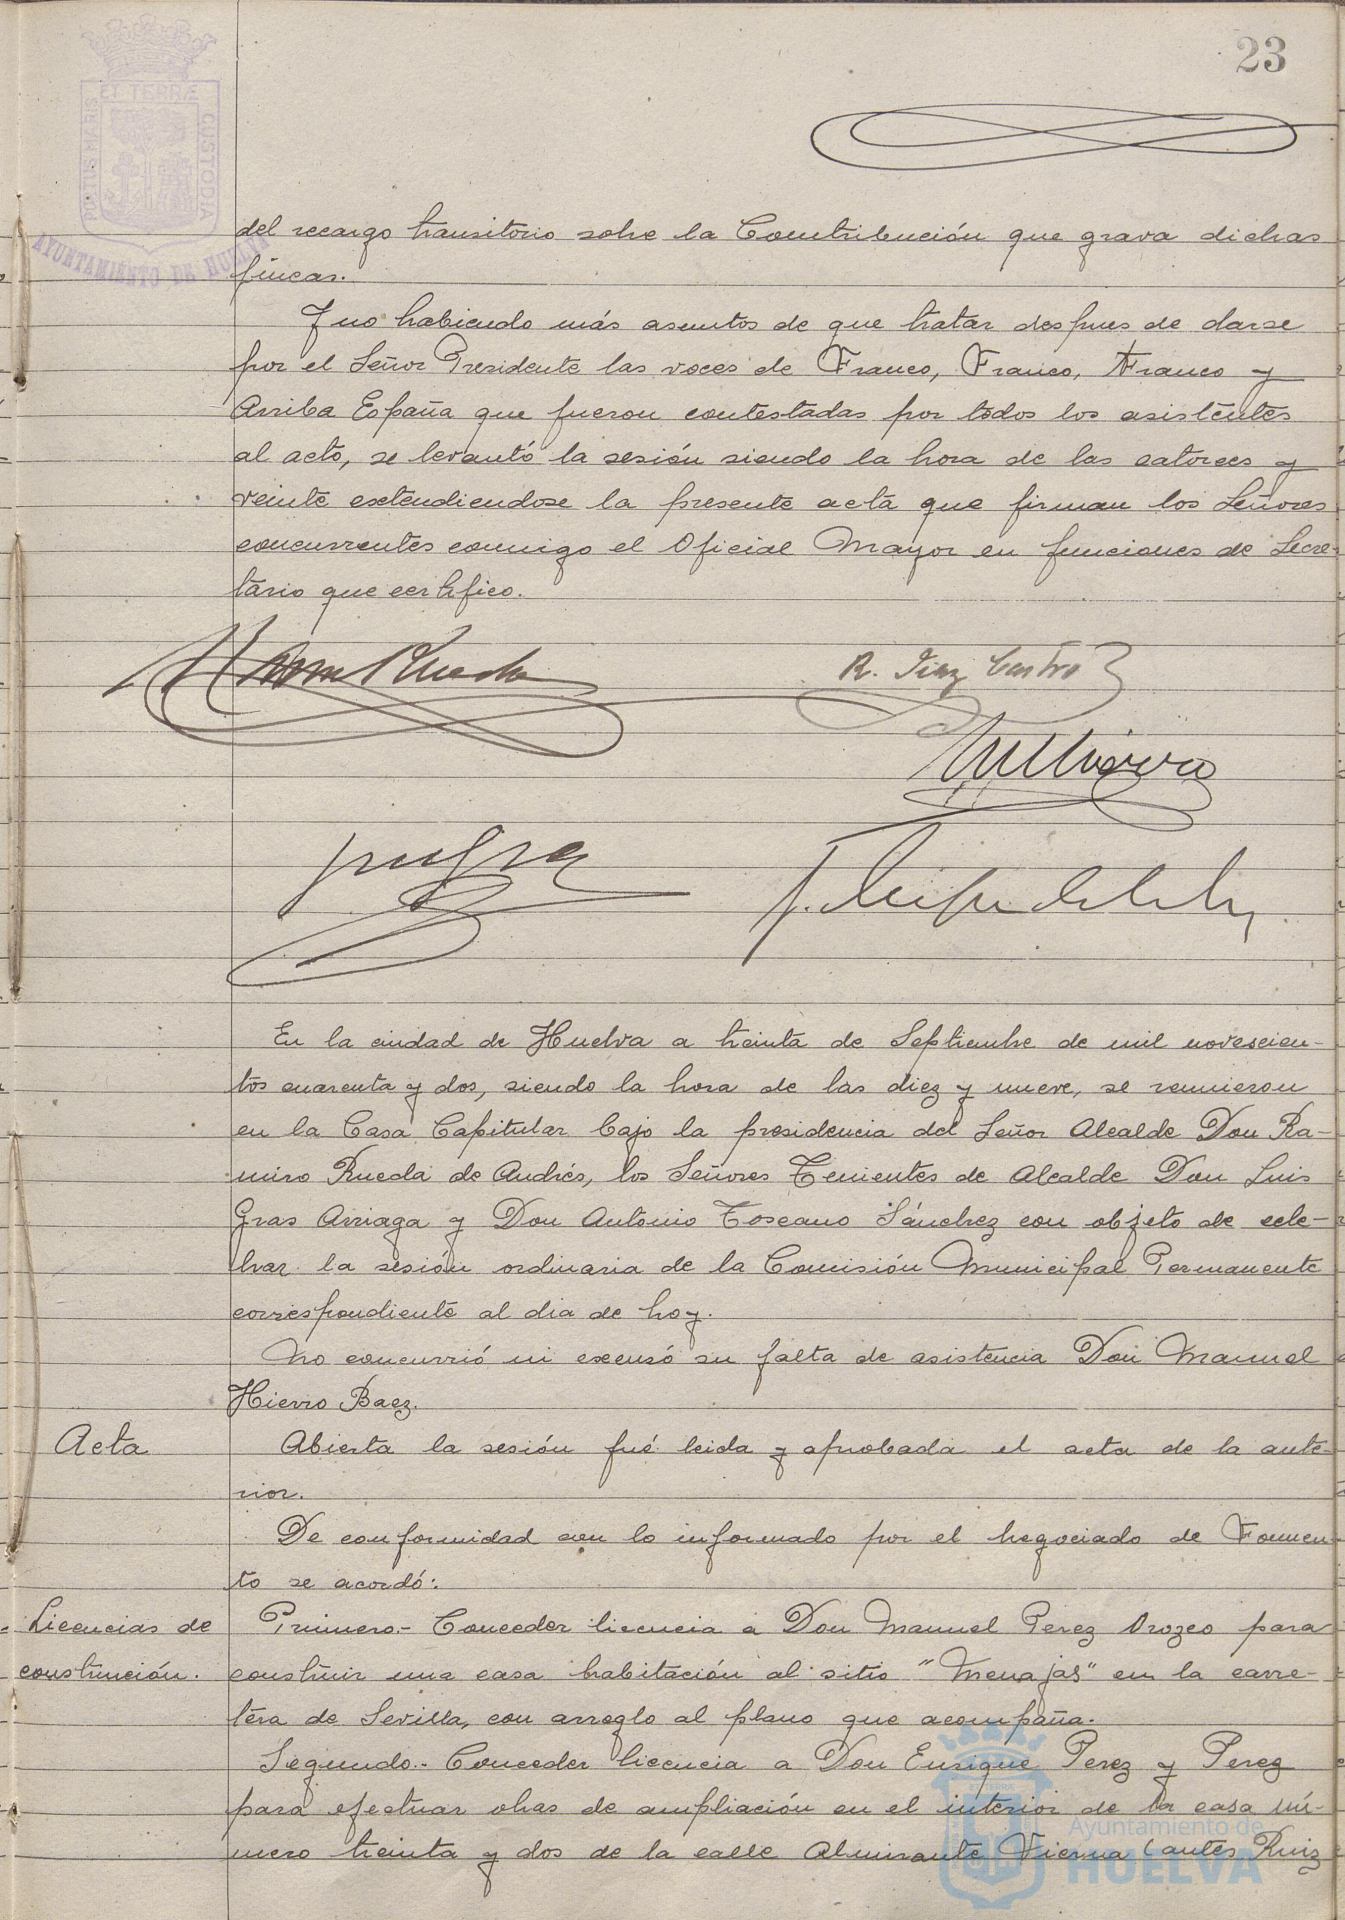 23
PORTUS MARIS ET TERRÆ CUSTODIA
AYUNTAMIENTO DE HUELVA
del recargo transitorio sobre la Contribución que grava dichas
fincas.
Y no habiendo más asuntos de que tratar despues de darse
por el Señor Presidente las voces de Franco, Franco, Franco y
Arriba España que fueron contestadas por todos los asistentes
al acto, se levantó la sesión siendo la hora de las catorces y
veinte extendiendose la presente acta que firman los Señores
concurrentes conmigo el Oficial Mayor en funciones de Secre-
tario que certifico.
Rueda
R. Diaz Castro
En la ciudad de Huelva a treinta de Septiembre de mil novescien-
tos cuarenta y dos, siendo la hora de las diez y nueve, se reunieron
en la Casa Capitular bajo la presidencia del Señor Alcalde Don Ra-
miro Rueda de Andrés, los Señores Tenientes de Alcalde Don Luis
Gras Arriaga y Don Antonio Toscano Sánchez con objeto de cele-
brar la sesión ordinaria de la Comisión Municipal Permanente
correspondiente al dia de hoy.
No concurrió ni excusó su falta de asistencia Don Manuel
Hierro Baez.
Acta
Abierta la sesión fué leida y aprobada el acta de la ante-
rior.
De conformidad con lo informado por el negociado de Fomen-
to se acordó:
Licencias de
construcción.
Primero.- Conceder licencia a Don Manuel Perez Orozco para
construir una casa habitación al sitio "Menajas" en la carre-
tera de Sevilla, con arreglo al plano que acompaña.
Segundo.- Conceder licencia a Don Enrique Perez y Perez
para efectuar obras de ampliación en el interior de la casa nú-
mero treinta y dos de la calle Almirante Vierna (antes Ruiz
Ayuntamiento de
HUELVA